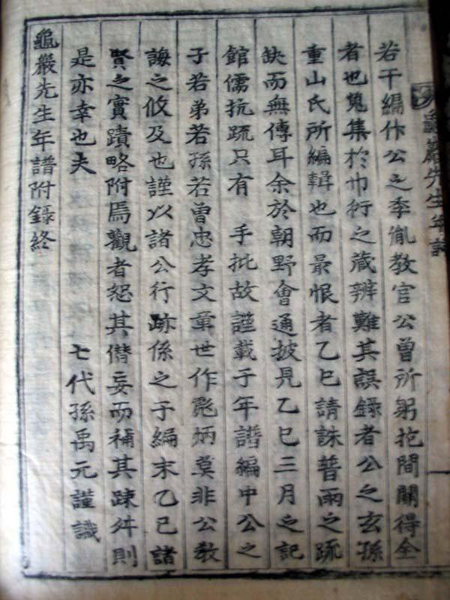 龜巖先生年譜
若干編仆公之季胤敎官公曾所躬抱間關得全
者也蒐集於巾衍之藏辨難其誤錄者公之玄孫
重山氏所編輯也而最恨者乙巳請誅普雨之疏
缺而無傳耳余於朝野會通披見乙巳三月之記
館儒抗疏只有 手批故謹載于年譜編中公之
子若弟若孫若曾忠孝文章世作彪炳莫非公敎
誨之攸及也謹以諸公行跡係之于編末乙巳諸
賢之實蹟略附焉觀者恕其僭妄而補其踈舛則
是亦幸也夫 七代孫禹元謹識
龜巖先生年譜附錄終